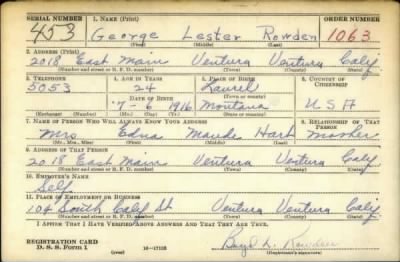 SERIAL NUMBER 1. NAME (Print) ORDER NUMBER
453 George Lester Rowden 1063
(First) (Middle) (Last)
2. ADDRESS (Print)
2018 East Main Ventura Ventura Calif
(Number and street or R. F. D. number) (Town) (County) (State)
3. TELEPHONE 4. AGE IN YEARS 5. PLACE OF BIRTH 6. COUNTRY OF CITIZENSHIP
5053 24 Laurel
(Town or county)
DATE OF BIRTH
7-6 1916 Montana USA
(Exchange) (Number) (Mo.) (Day) (Yr.) (State or country)
7. NAME OF PERSON WHO WILL ALWAYS KNOW YOUR ADDRESS 8. RELATIONSHIP OF THAT PERSON
Mrs Edna Maude Hart Mother
(Mr., Mrs., Miss) (First) (Middle) (Last)
9. ADDRESS OF THAT PERSON
2018 East Main Ventura Ventura Calif
(Number and street or R. F. D. number) (Town) (County) (State)
10. EMPLOYER'S NAME
Self
11. PLACE OF EMPLOYMENT OR BUSINESS
104 South Calif St Ventura Ventura Calif
(Number and street or R. F. D. number) (Town) (County) (State)
I AFFIRM THAT I HAVE VERIFIED ABOVE ANSWERS AND THAT THEY ARE TRUE.
REGISTRATION CARD
D. S. S. Form 1 (over) 16-17105 L. Rowden
(Registrant's signature)